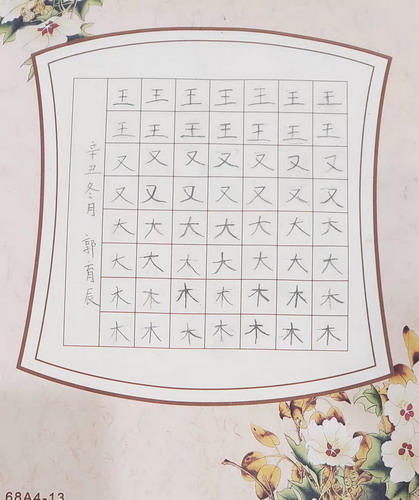 王王王王王王王
王王王王王王王
又又又又又又又
又又又又又又又
大大大大大大大
大大大大大大大
木木木木木木木
木木木木木木木
辛丑冬月 郭育辰
68A4-13